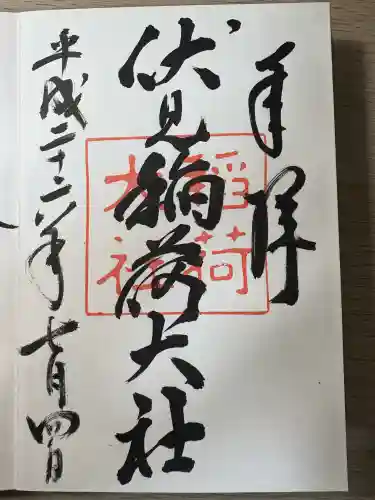 奉拝
伏見稲荷大社
稲荷大社
平成二十六年七月四日